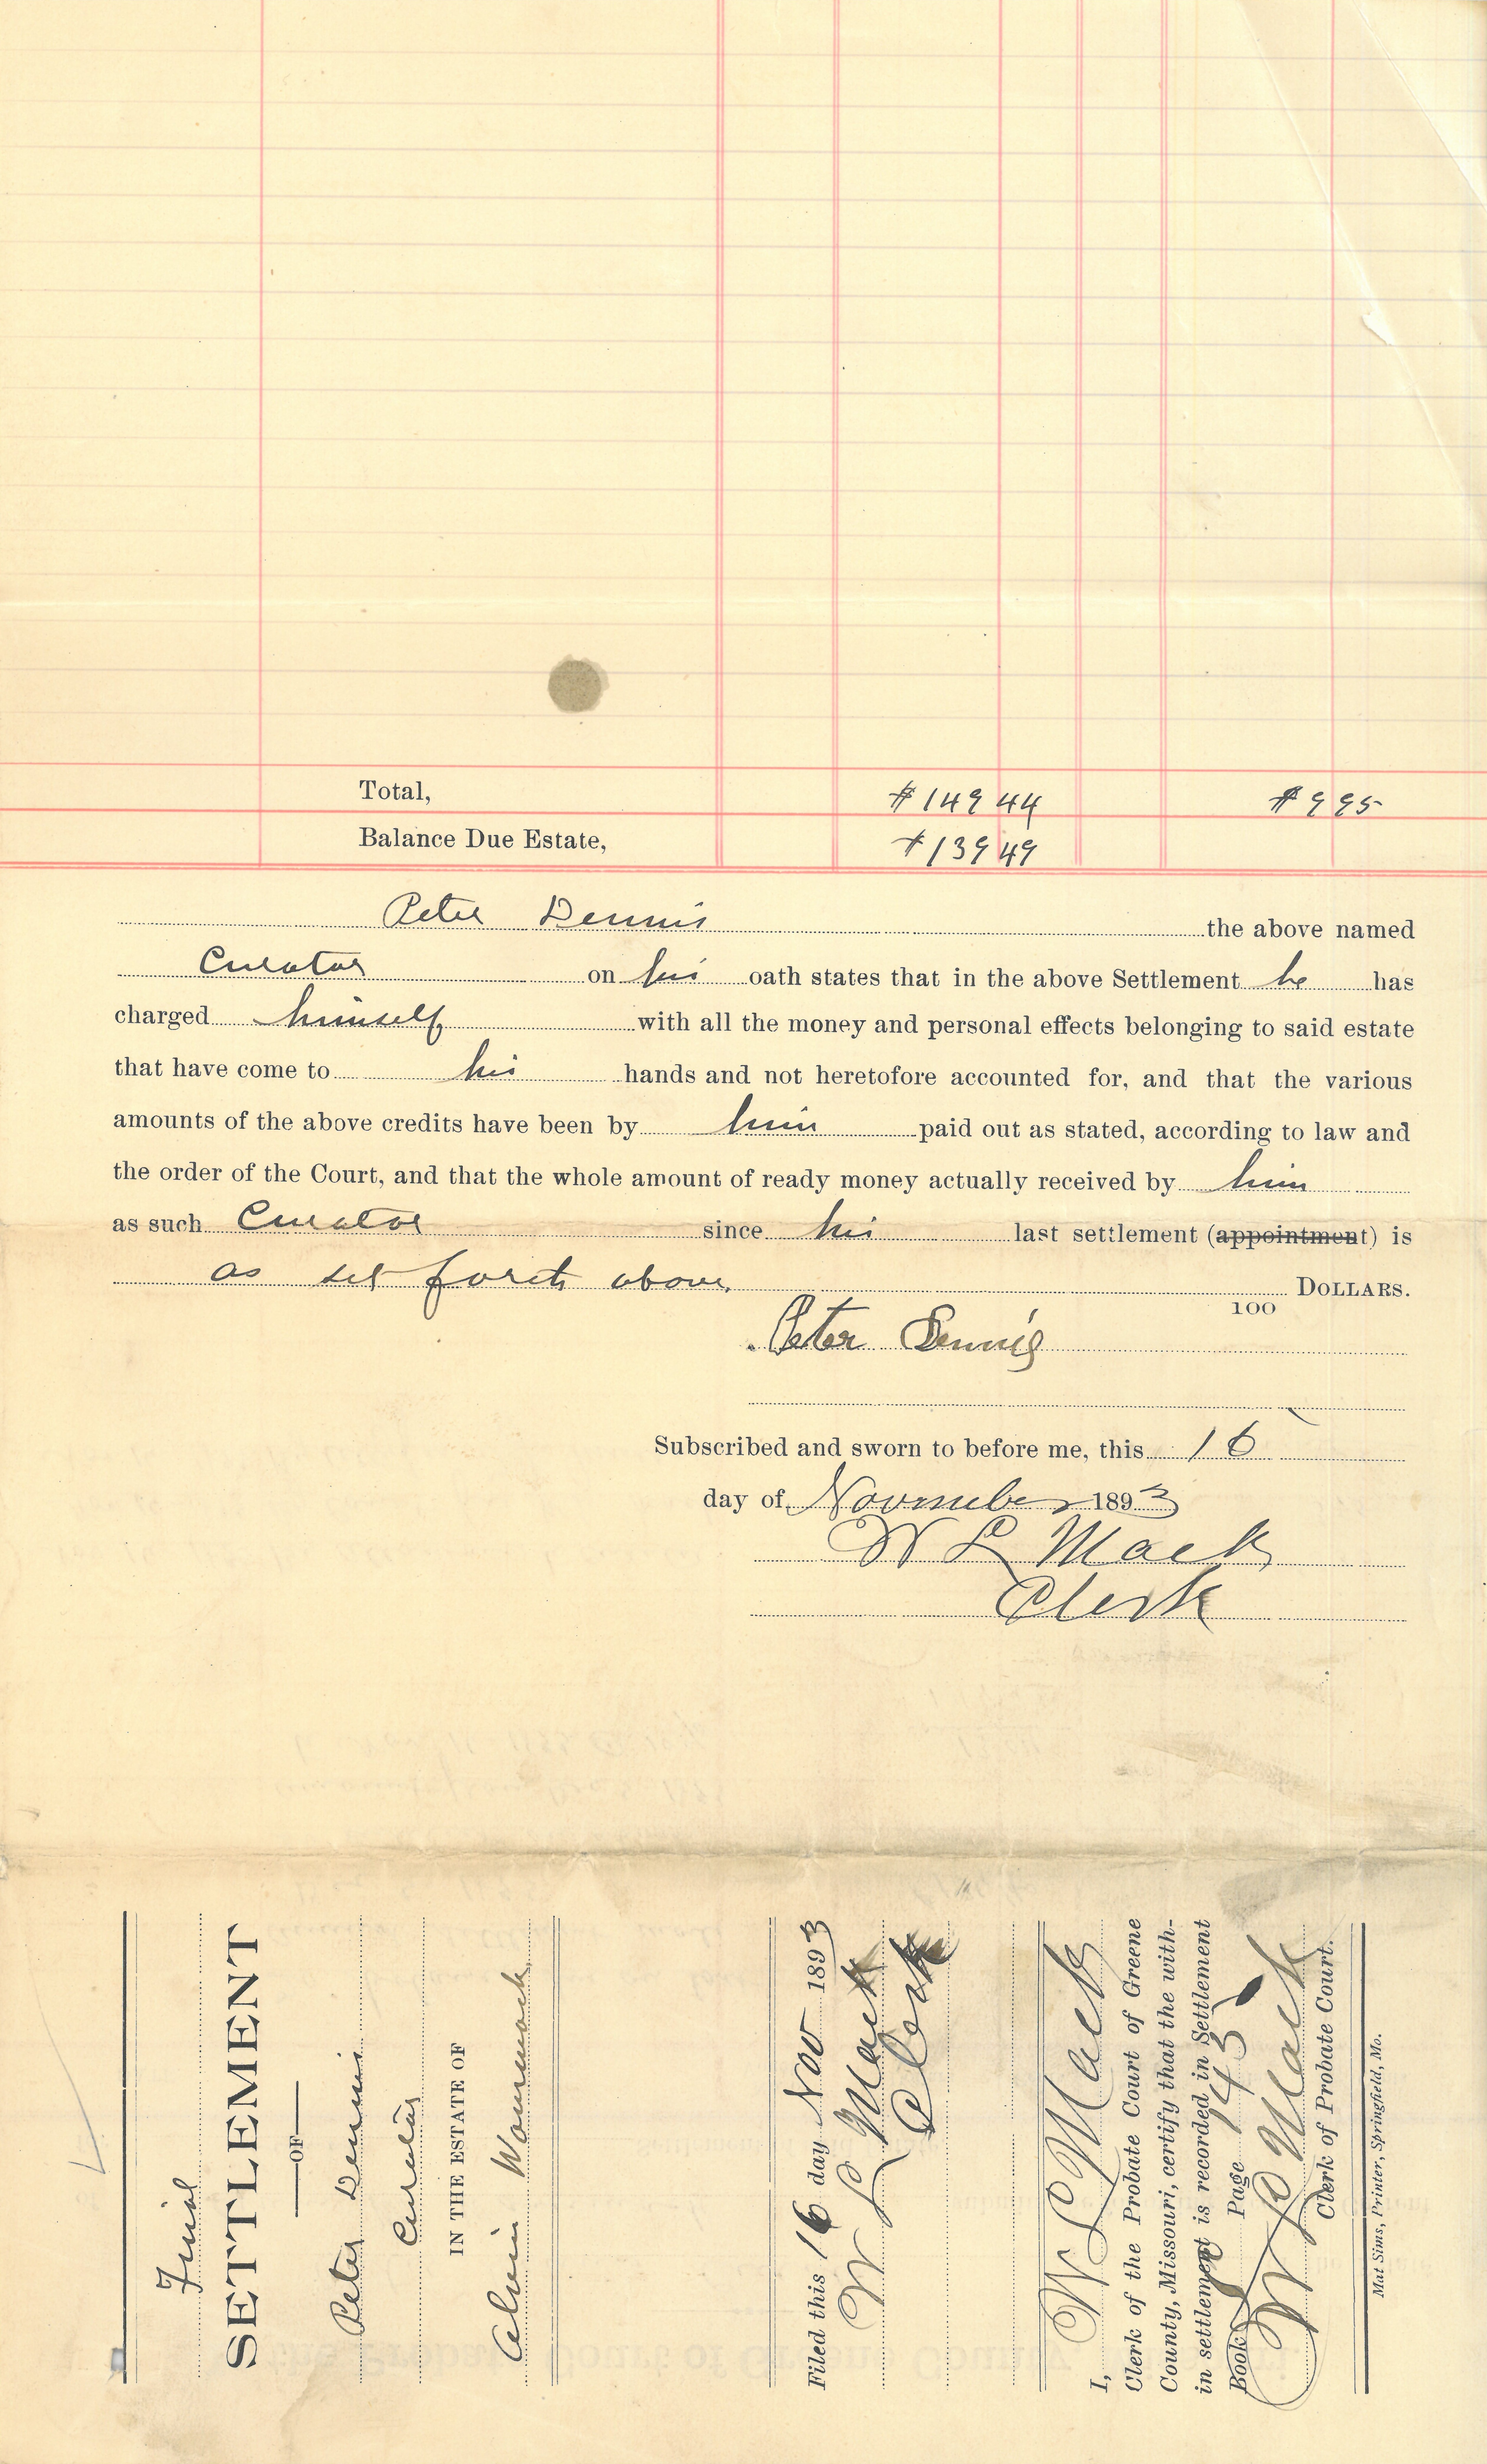 Total, $149 44 $9 95
Balance Due Estate, $139 49
Peter Dennis the above named
Curator on his oath states that in the above Settlement he has
charged himself with all the money and personal effects belonging to said estate
that have come to his hands and not heretofore accounted for, and that the various
amounts of the above credits have been by him paid out as stated, according to law and
the order of the Court, and that the whole amount of ready money actually received by him
as such Curator since his last settlement (appointment) is
as set forth above. DOLLARS.
100
Peter Dennis
Subscribed and sworn to before me, this 16
day of November 1893
W L Mack
Clerk
Final
SETTLEMENT
OF
Peter Dennis
Curator
IN THE ESTATE OF
Alvin Wommack
Filed this 16 day Nov 1893
W L Mack
Clerk
I, W L Mack
Clerk of the Probate Court of Greene
County, Missouri, certify that the with-
in settlement is recorded in Settlement
Book Page 143
W L Mack
Clerk of Probate Court.
Mat Sims, Printer, Springfield, Mo.